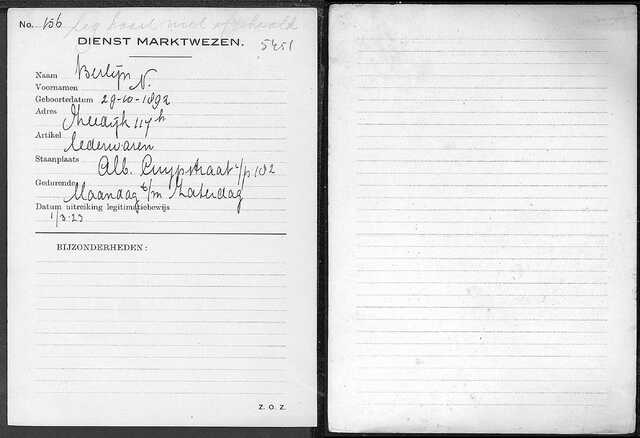 No. 156 Leg kaart niet afgehaald
DIENST MARKTWEZEN.
5451
Naam Berlijn
Voornamen N.
Geboortedatum 29-10-1892
Adres 117h
Artikel Lederwaren
Staanplaats Alb. Cuypstraat t/o 182
Gedurende Maandag t/m Zaterdag
Datum uitreiking legitimatiebewijs
1/3-23
BIJZONDERHEDEN:
Z. O. Z.